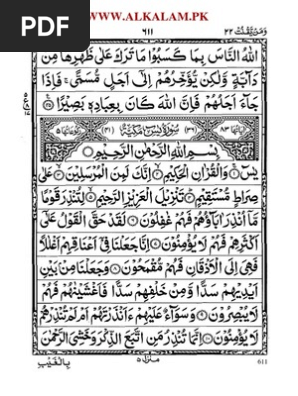 PDF
www.ALKALAM.PK
ومن يقنت ٢٢
٦١١
اللهُ النَّاسَ بِمَا كَسَبُوا مَا تَرَكَ عَلَى ظَهْرِهَا مِنْ
دَآبَّةٍ وَّلٰكِنْ يُّؤَخِّرُهُمْ إِلَى أَجَلٍ مُّسَمًّى فَإِذَا
جَآءَ أَجَلُهُمْ فَإِنَّ اللهَ كَانَ بِعِبَادِهٖ بَصِيرًا
سُوْرَةُ يٰسٓ مَكِّيَّةٌ
بِسْمِ اللهِ الرَّحْمٰنِ الرَّحِيْمِ
يٰسٓ وَالْقُرْاٰنِ الْحَكِيْمِ اِنَّكَ لَمِنَ الْمُرْسَلِيْنَ عَلٰى
صِرَاطٍ مُّسْتَقِيْمٍ تَنْزِيْلَ الْعَزِيْزِ الرَّحِيْمِ لِتُنْذِرَ قَوْمًا
مَّآ اُنْذِرَ اٰبَآؤُهُمْ فَهُمْ غٰفِلُوْنَ لَقَدْ حَقَّ الْقَوْلُ عَلٰٓى
اَكْثَرِهِمْ فَهُمْ لَا يُؤْمِنُوْنَ اِنَّا جَعَلْنَا فِيْٓ اَعْنَاقِهِمْ اَغْلٰلًا
فَهِيَ اِلَى الْاَذْقَانِ فَهُمْ مُّقْمَحُوْنَ وَجَعَلْنَا مِنْۢ بَيْنِ
اَيْدِيْهِمْ سَدًّا وَّمِنْ خَلْفِهِمْ سَدًّا فَاَغْشَيْنٰهُمْ فَهُمْ
لَا يُبْصِرُوْنَ وَسَوَآءٌ عَلَيْهِمْ ءَاَنْذَرْتَهُمْ اَمْ لَمْ تُنْذِرْهُمْ
لَا يُؤْمِنُوْنَ اِنَّمَا تُنْذِرُ مَنِ اتَّبَعَ الذِّكْرَ وَخَشِيَ الرَّحْمٰنَ
بِالْغَيْبِ
منزل ٥
611